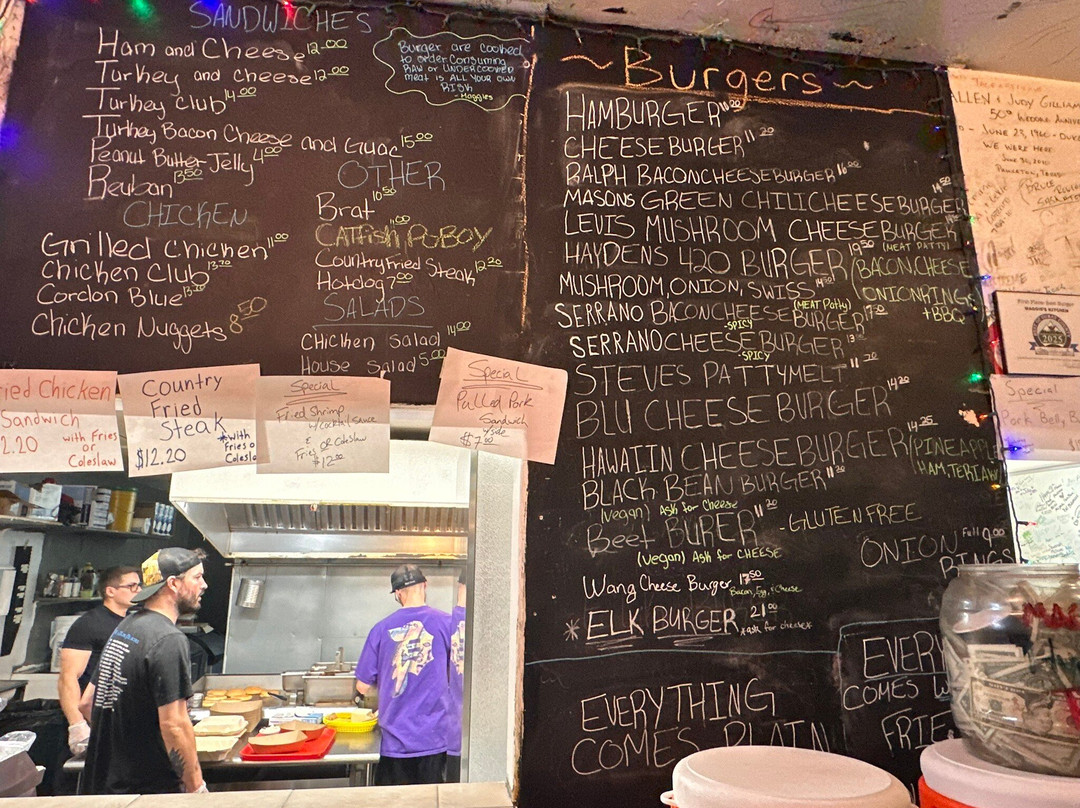 SANDWICHES
Ham and Cheese 12.00
Turkey and Cheese 12.00
Turkey Club 14.00
Turkey Bacon Cheese and Guac 15.00
Peanut Butter Jelly 4.00
Reuban 13.50
Burger are cooked
to order Consuming
RAW or UNDERCOOKED
meat is ALL YOUR OWN
RISK
-Maggies
CHICKEN
Grilled Chicken 11.00
Chicken Club 13.20
Cordon Blue
Chicken Nuggets 8.50
OTHER
Brat 10.50
CATfish PoBOY 11.00
Country Fried Steak 12.20
Hotdog 7.00
SALADS
Chicken Salad 14.00
House Salad 5.00
~Burgers~
HAMBURGER 10.20
CHEESEBURGER 11.20
RALPH BACONCHEESEBURGER 16.00
MASONS GREEN CHILICHEESEBURGER 14.50
LEVIS MUSHROOM CHEESEBURGER
(MEAT PATTY)
HAYDENS 420 BURGER (BACON,CHEESE
ONIONRINGS
+BBQ
MUSHROOM, ONION, SWISS
(MEAT Patty)
SERRANO BACONCHEESEBURGER
-SPICY
SERRANO CHEESEBURGER
-SPICY
STEVES PATTYMELT 11.20
BLU CHEESE BURGER 14.20
HAWAIIN CHEESEBURGER 14.25 (PINEAPPLE
HAM, TERIAW
BLACK BEAN BURGER 11.20
(Vegan) Ask for Cheese
Beet BURER 11.20 -GLUTEN FREE
(Vegan) Ask for CHEESE
ONION Full 9.00
RINGS
Wang Cheese Burger 17.50
Bacon, Egg, & Cheese
*ELK BURGER 21.00
*ask for cheese*
EVERYTHING
COMES PLAIN
EVERY
COMES W
FRIE
ried Chicken
Sandwich
2.20 with Fries
or
Coleslaw
Country
Fried
Steak
$12.20
*with
Fries o
Colesla
Special
Fried Shrimp
w/Cocktail Sauce
&
Fries or Coleslaw
$12.00
Special
Pulled Pork
Sandwich
w/side
Special
Pork Belly B
ALLEN & JUDY GILLIAM
50th WEDDING ANNIV
JUNE 23, 1960 - DUKE
WE WERE HERE
MAGGIE'S KITCHEN
2025